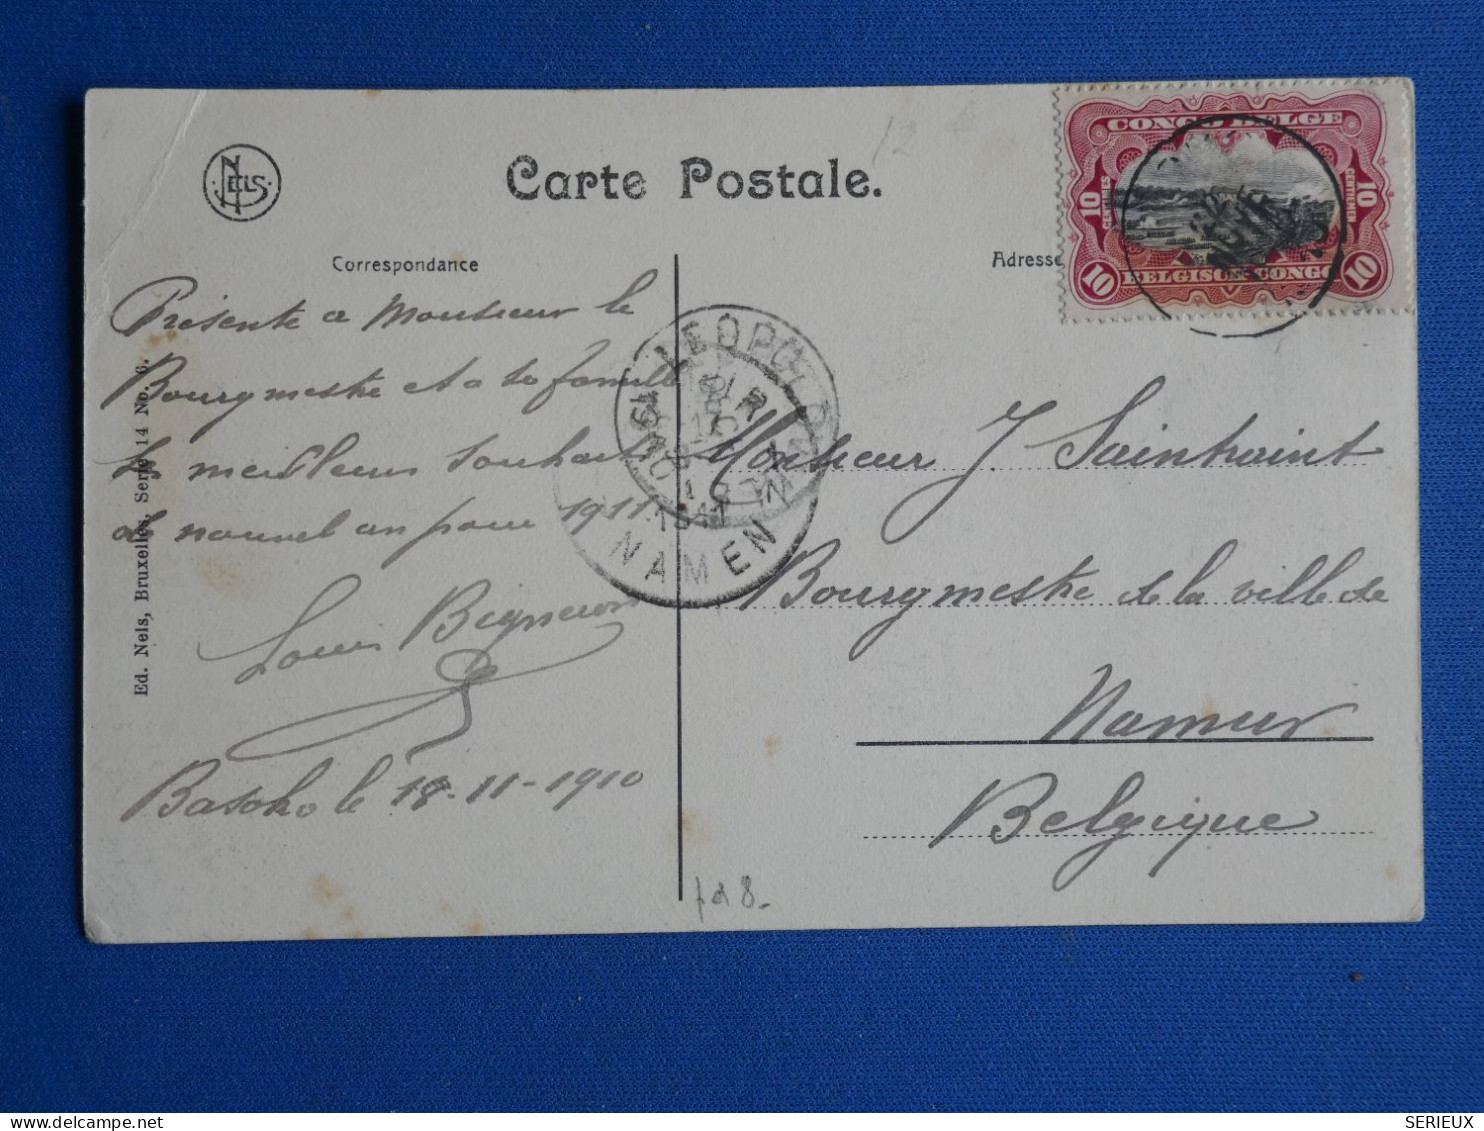 NELS
Carte Postale.
Correspondance
Adresse
CONGO BELGE
10 10
CENTIMES CENTIEMEN
10 BELGISCH CONGO 10
Présente a Monsieur le
Bourgmestre et a sa famille
les meilleurs souhaits
de nouvel an pour 1911
Louis
Basoko le 18-11-1910
Ed. Nels, Bruxelles, Serie 14 No. 6.
LEOPOLDVILLE
NAMUR
NAMEN
Monsieur J. Saintraint
Bourgmestre de la ville de
Namur
Belgique
SERIEUX